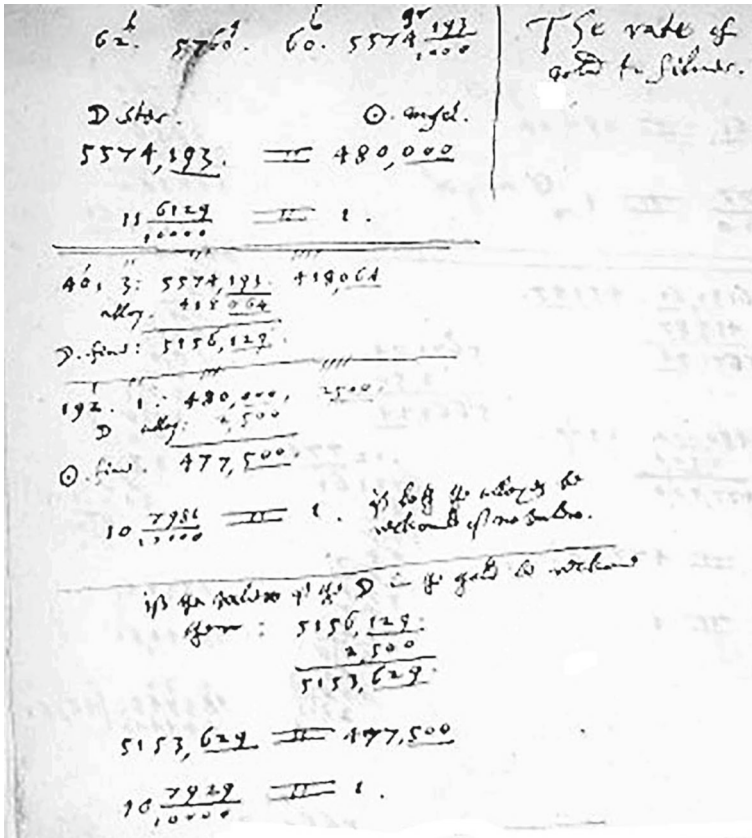 62. 5760. 60. 5574 193/1000
The rate of
gold to silver.
☽ ster. ☉.
5574,193. = 480,000
11 6129/10000 = 1.
40, 3: 5574,193. 418,064
alloy. 418 064
☽. fine: 5156,129.
192. 1: 480,000, 2500
☽ alloy: 2,500
☉. fine. 477,500.
10 7981/10000 = 1. if both the alloyes be
reckoned of no value.
if the value of the ☽ in the gold be reckoned
then: 5156,129.
2,500
5153,629.
5153,629 = 477,500
10 7929/10000 = 1.